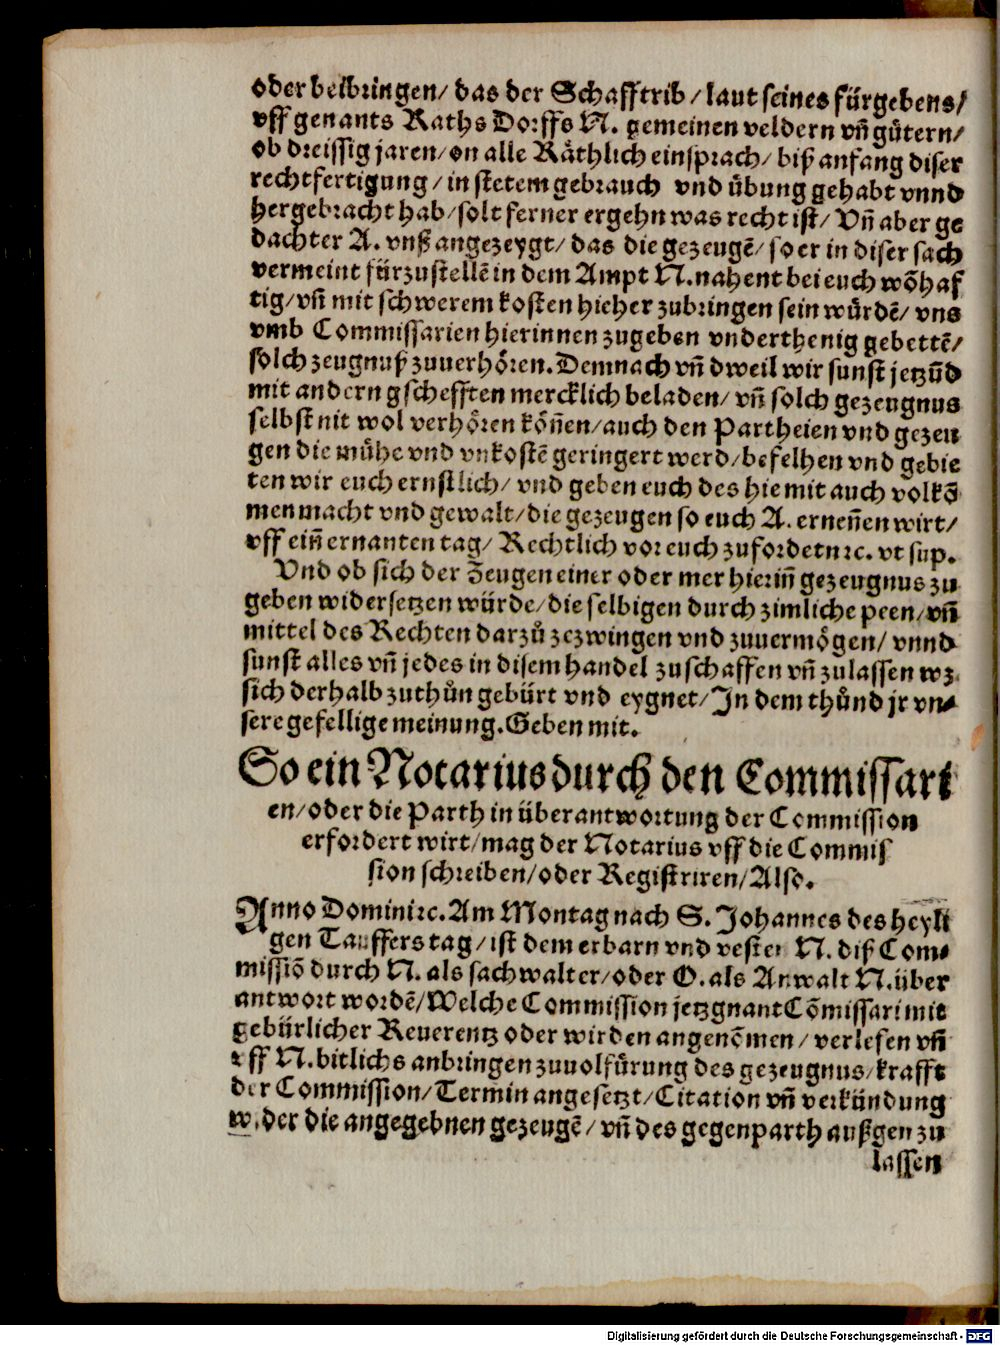 oder beibringen/ das der Schafftrib/ laut seines fürgebens/
vff genants Raths Dorffs N. gemeinen veldern vñ gütern/
ob dreissig jaren/ on alle Räthlich einsprach/ biß anfang diser
rechtfertigung/ in stetem gebrauch vnd übung gehabt vnnd
hergebracht hab/ solt ferner ergehn was recht ist/ Vñ aber ge
dachter A. vnß angezeygt/ das die gezeugẽ/ so er in diser sach
vermeint fürzustellẽ in dem Ampt N. nahent bei euch wõhaf
tig/ vñ mit schwerem kosten hieher zubringen sein würdẽ/ vns
vmb Commissarien hierinnen zugeben vnderthenig gebettẽ/
solch zeugnuß zuuerhören. Demnach vñ dweil wir sunst jetzũd
mit andern gschefften mercklich beladen/ vñ solch gezeugnus
selbst nit wol verhören köñen/ auch den Partheien vnd gezeu
gen die mühe vnd vnkostẽ geringert werd/ befelhen vnd gebie
ten wir euch ernstlich/ vnd geben euch des hie mit auch volkõ
men macht vnd gewalt/ die gezeugen so euch A. erneñen wirt/
vff eiñ ernanten tag/ Rechtlich vor euch zufordetn ꝛc. vt sup.
Vnd ob sich der Zeugen einer oder mer hieriñ gezeugnus zu
geben widersetzen würde/ die selbigen durch zimliche peen/ vñ
mittel des Rechten darzů zezwingen vnd zuuermögen/ vnnd
sunst alles vñ jedes in disem handel zuschaffen vñ zulassen wz
sich derhalb zuthůn gebürt vnd eygnet/ In dem thůnd jr vn⸗
sere gefellige meinung. Geben mit.
So ein Notarius durch den Commissari
en/ oder die Parth in überantwortung der Commission
erfordert wirt/ mag der Notarius vff die Commis
sion schreiben/ oder Registriren/ Also.
Anno Domini ꝛc. Am Montag nach S. Johannes des heyli
gen Tauffers tag/ ist dem erbarn vnd vesten N. diß Com⸗
missiõ durch N. als sachwalter/ oder O. als Anwalt N. über
antwort wordẽ/ Welche Commission jetzgnant Cõmissari mit
gebürlicher Reuerentz oder wirden angenõmen/ verlesen vñ
vff N. bitlichs anbringen zuuolfürung des gezeugnus/ krafft
der Commission/ Termin angesetzt/ Citation vñ verkündung
wider die angegebnen gezeugẽ/ vñ des gegenparth außgen zu
lassen
Digitalisierung gefördert durch die Deutsche Forschungsgemeinschaft - DFG